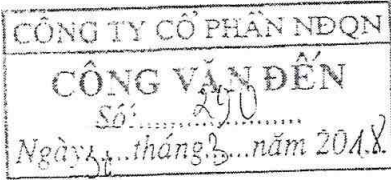 CÔNG TY CỔ PHẦN NĐQN
CÔNG VĂN ĐẾN
Số: 290
Ngày 31 tháng 3 năm 2018